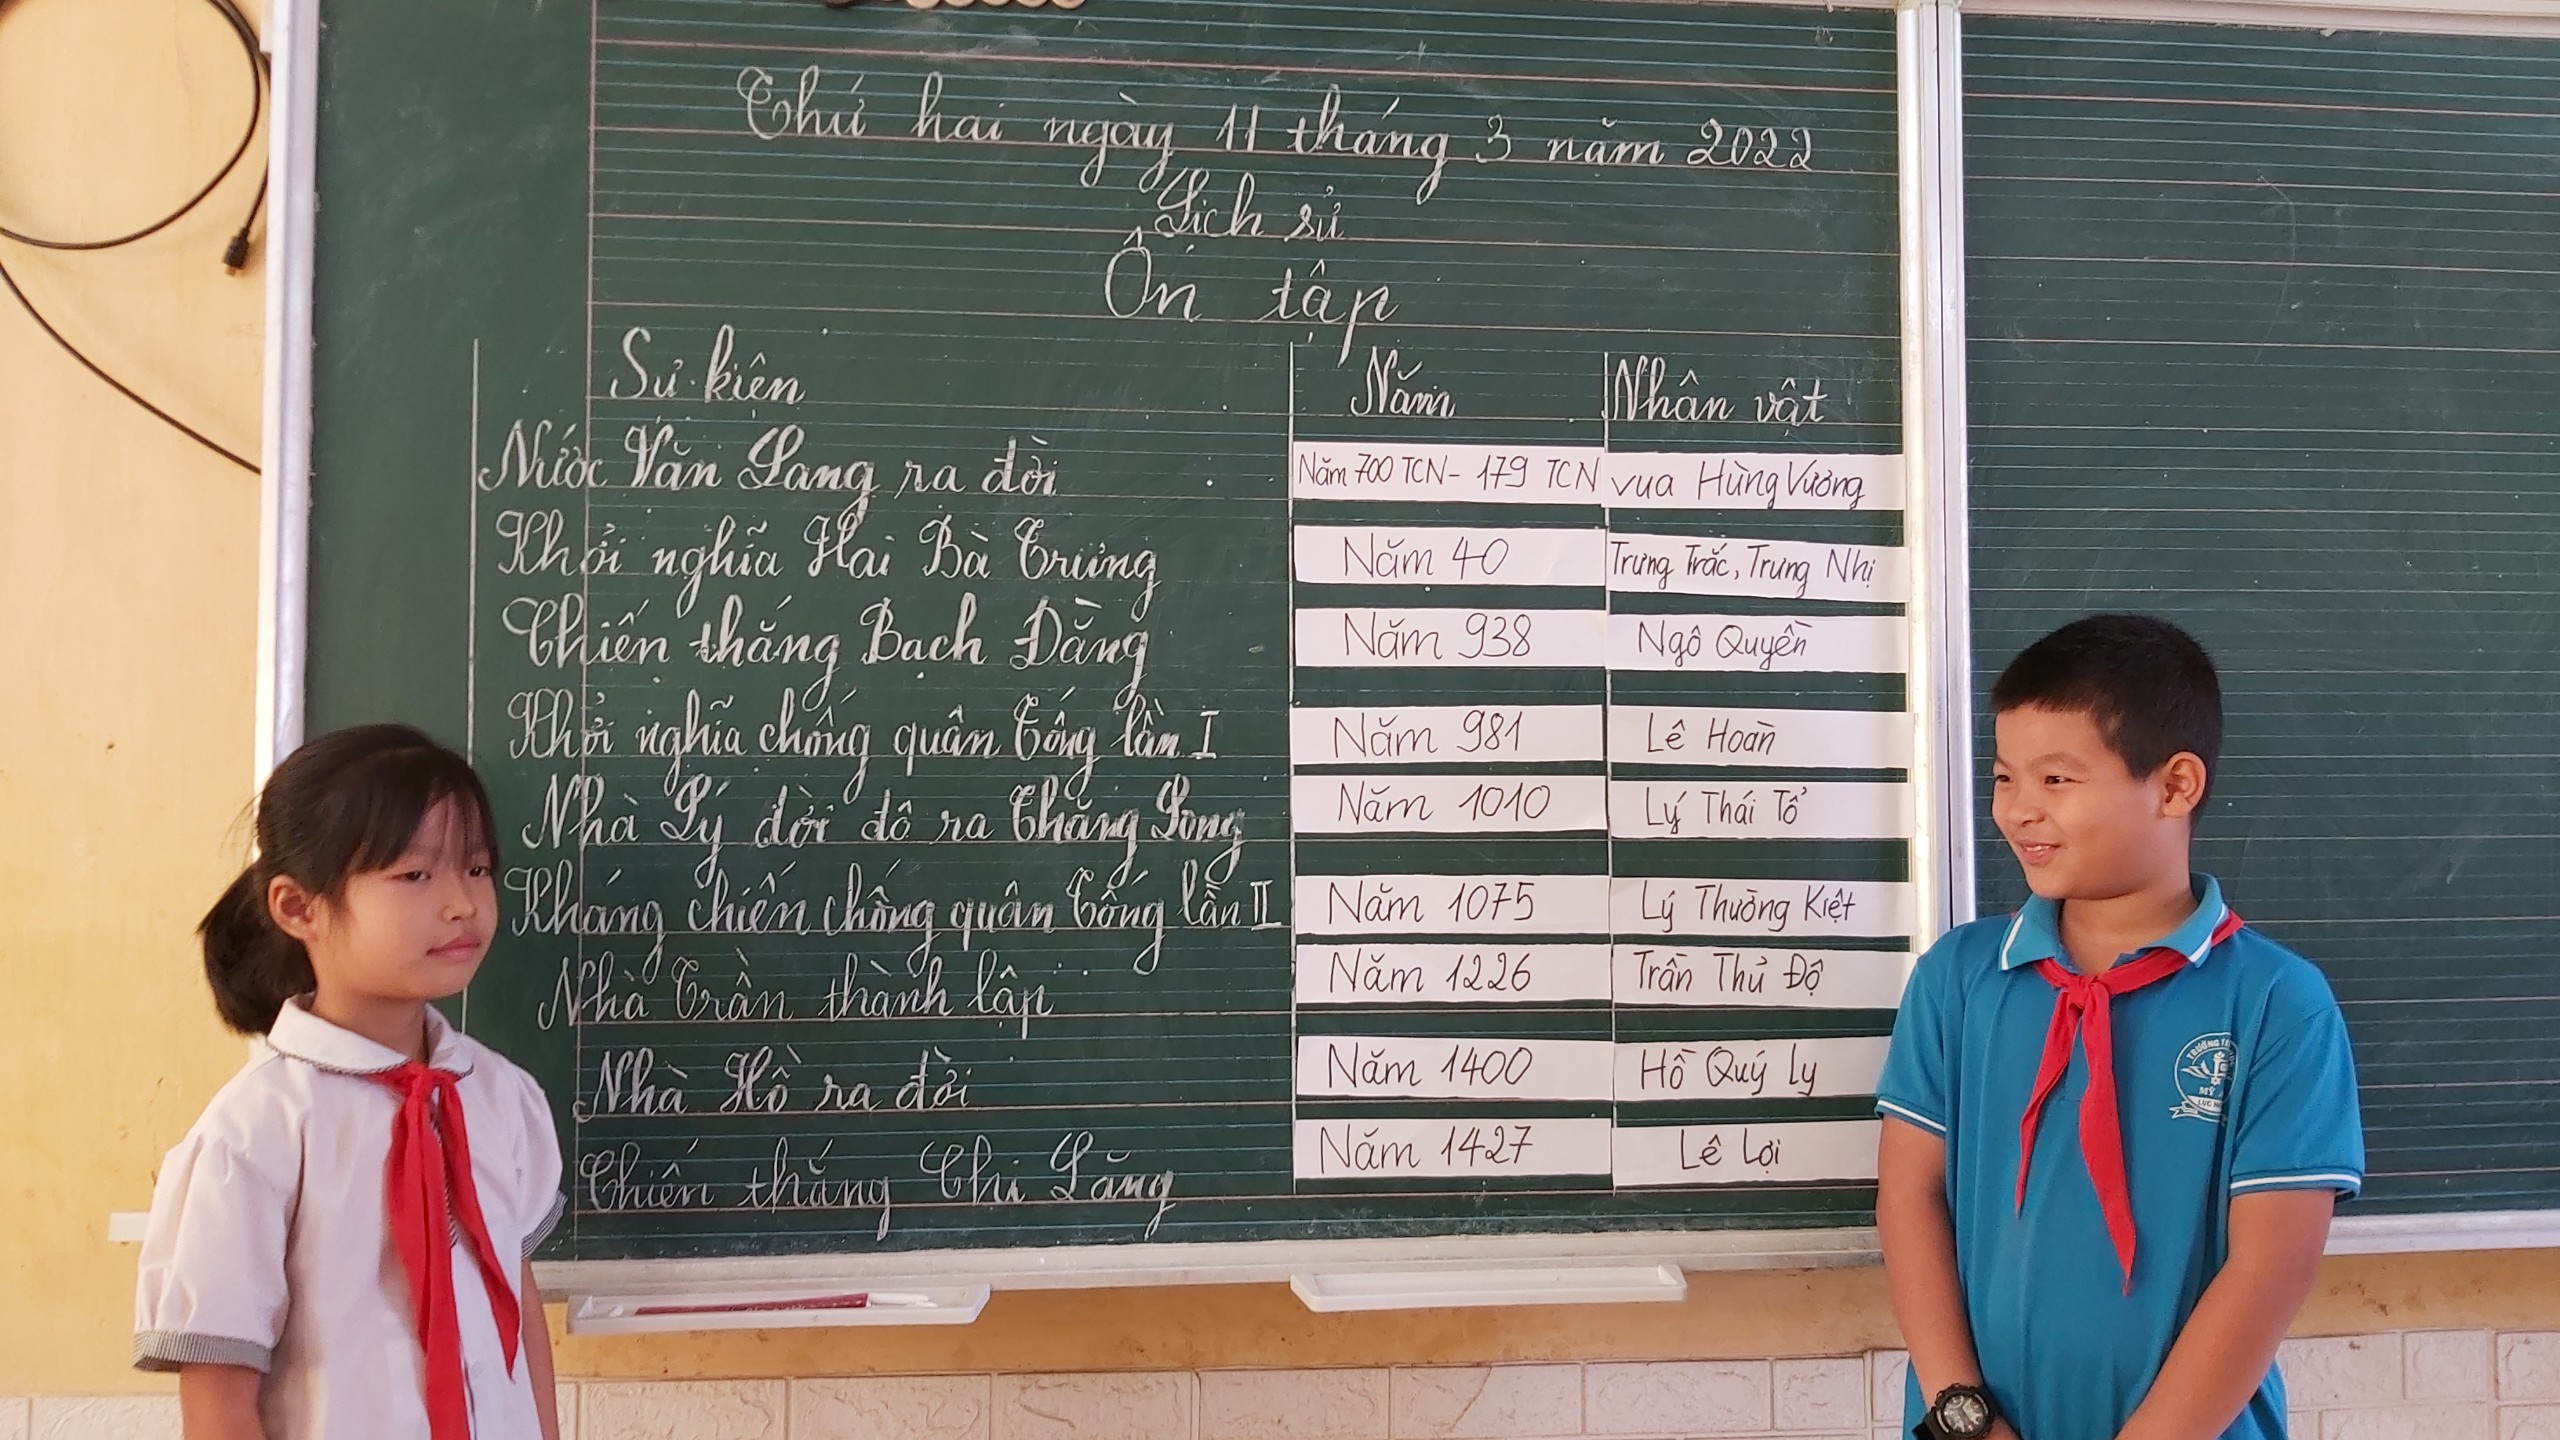 Thứ hai ngày 11 tháng 3 năm 2022
Lịch sử
Ôn tập
Sự kiện Năm Nhân vật
Nước Văn Lang ra đời Năm 700 TCN - 179 TCN vua Hùng Vương
Khởi nghĩa Hai Bà Trưng Năm 40 Trưng Trắc, Trưng Nhị
Chiến thắng Bạch Đằng Năm 938 Ngô Quyền
Khởi nghĩa chống quân Tống lần I Năm 981 Lê Hoàn
Nhà Lý dời đô ra Thăng Long Năm 1010 Lý Thái Tổ
Kháng chiến chống quân Tống lần II Năm 1075 Lý Thường Kiệt
Nhà Trần thành lập Năm 1226 Trần Thủ Độ
Nhà Hồ ra đời Năm 1400 Hồ Quý Ly
Chiến thắng Chi Lăng Năm 1427 Lê Lợi
TRƯỜNG
MỸ